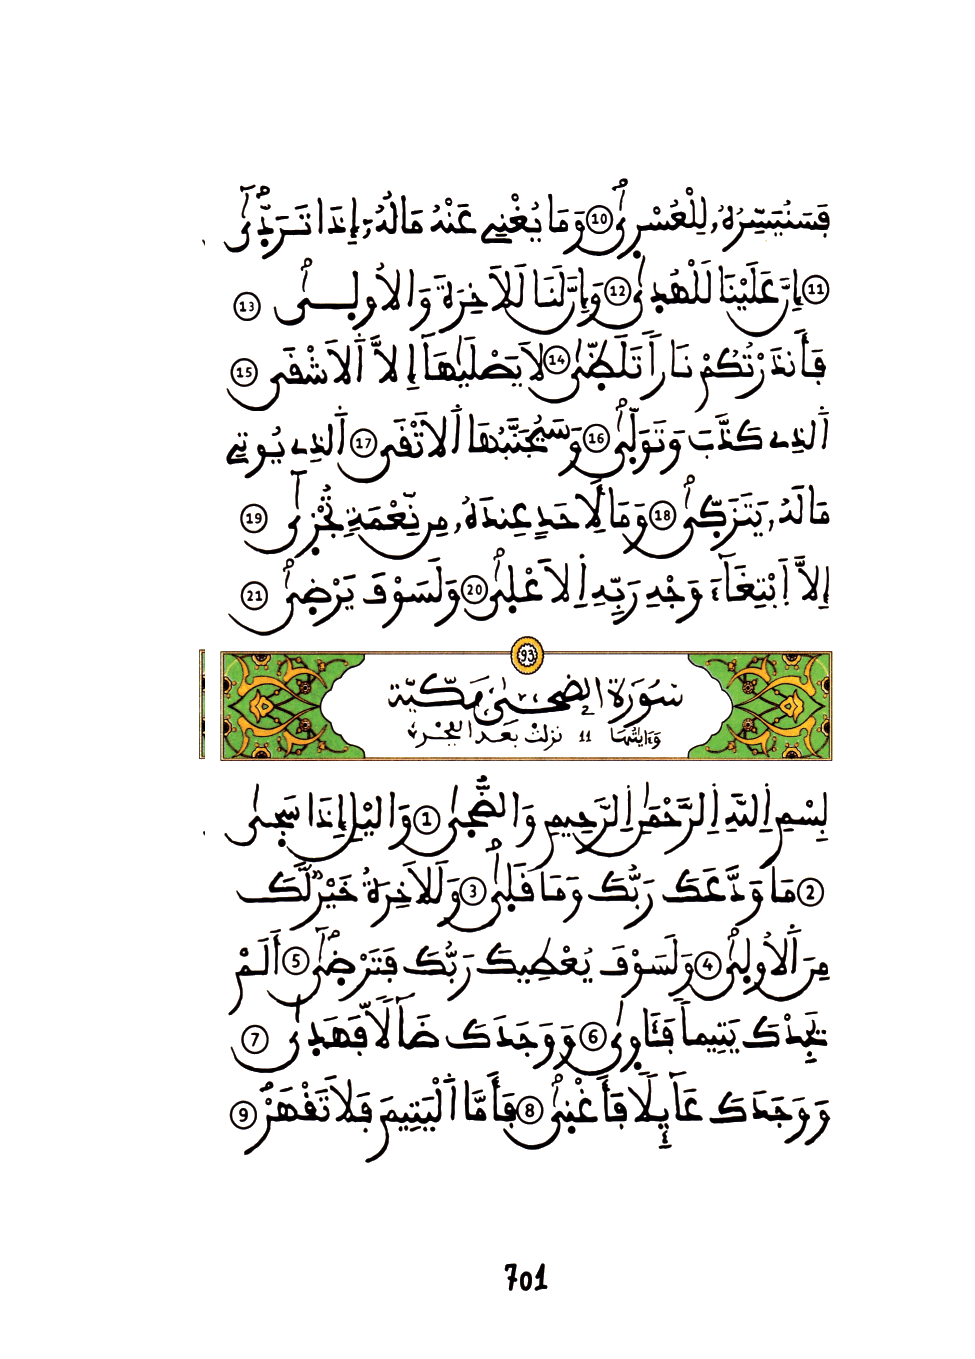 فَسَنُيَسِّرُهُۥ لِلْعُسْرٜىٰ 10 وَمَا يُغْنِے عَنْهُ مَالُهُۥٓ إِذَا تَرَدّٜىٰٓ
11 إِنَّ عَلَيْنَا لَلْهُدٜىٰ 12 وَإِنَّ لَنَا لَلَاخِرَةَ وَالُاولٜىٰ 13
فَأَنذَرْتُكُمْ نَاراٗ تَلَظّٜىٰ 14 لَا يَصْلَيٰهَآ إِلَّا اَ۬لَاشْقَى 15
اَ۬لذِے كَذَّبَ وَتَوَلّٜىٰ 16 وَسَيُجَنَّبُهَا اَ۬لَاتْقَى 17 اَ۬لذِے يُوتِے
مَالَهُۥ يَتَزَكّٜىٰ 18 وَمَا لِأَحَدٍ عِندَهُۥ مِن نِّعْمَةٖ تُجْزٜىٰٓ 19
إِلَّا اَ۪بْتِغَآءَ وَجْهِ رَبِّهِ اِ۬لَاعْلٜىٰ 20 وَلَسَوْفَ يَرْضٜىٰ 21
93
سُورَةُ الضُّحٜىٰ مَكِّيَّة
وَءَايَٰتُهَا 11 نزلتْ بَعْدَ الفَجْر
بِسْمِ اِ۬للَّهِ اِ۬لرَّحْمَٰنِ اِ۬لرَّحِيمِ وَالضُّحٜىٰ 1 وَاليْلِ إِذَا سَجٜىٰ
2 مَا وَدَّعَكَ رَبُّكَ وَمَا قَلٜىٰ 3 وَلَلَاخِرَةُ خَيْرٞ لَّكَ
مِنَ اَ۬لُاولٜىٰ 4 وَلَسَوْفَ يُعْطِيكَ رَبُّكَ فَتَرْضٜىٰٓ 5 أَلَمْ
يَجِدْكَ يَتِيماٗ فَـَٔاوٜىٰ 6 وَوَجَدَكَ ضَآلّاٗ فَهَدٜىٰ 7
وَوَجَدَكَ عَآئِلاٗ فَأَغْنٜىٰ 8 فَأَمَّا اَ۬لْيَتِيمَ فَلَا تَقْهَرْ 9
701